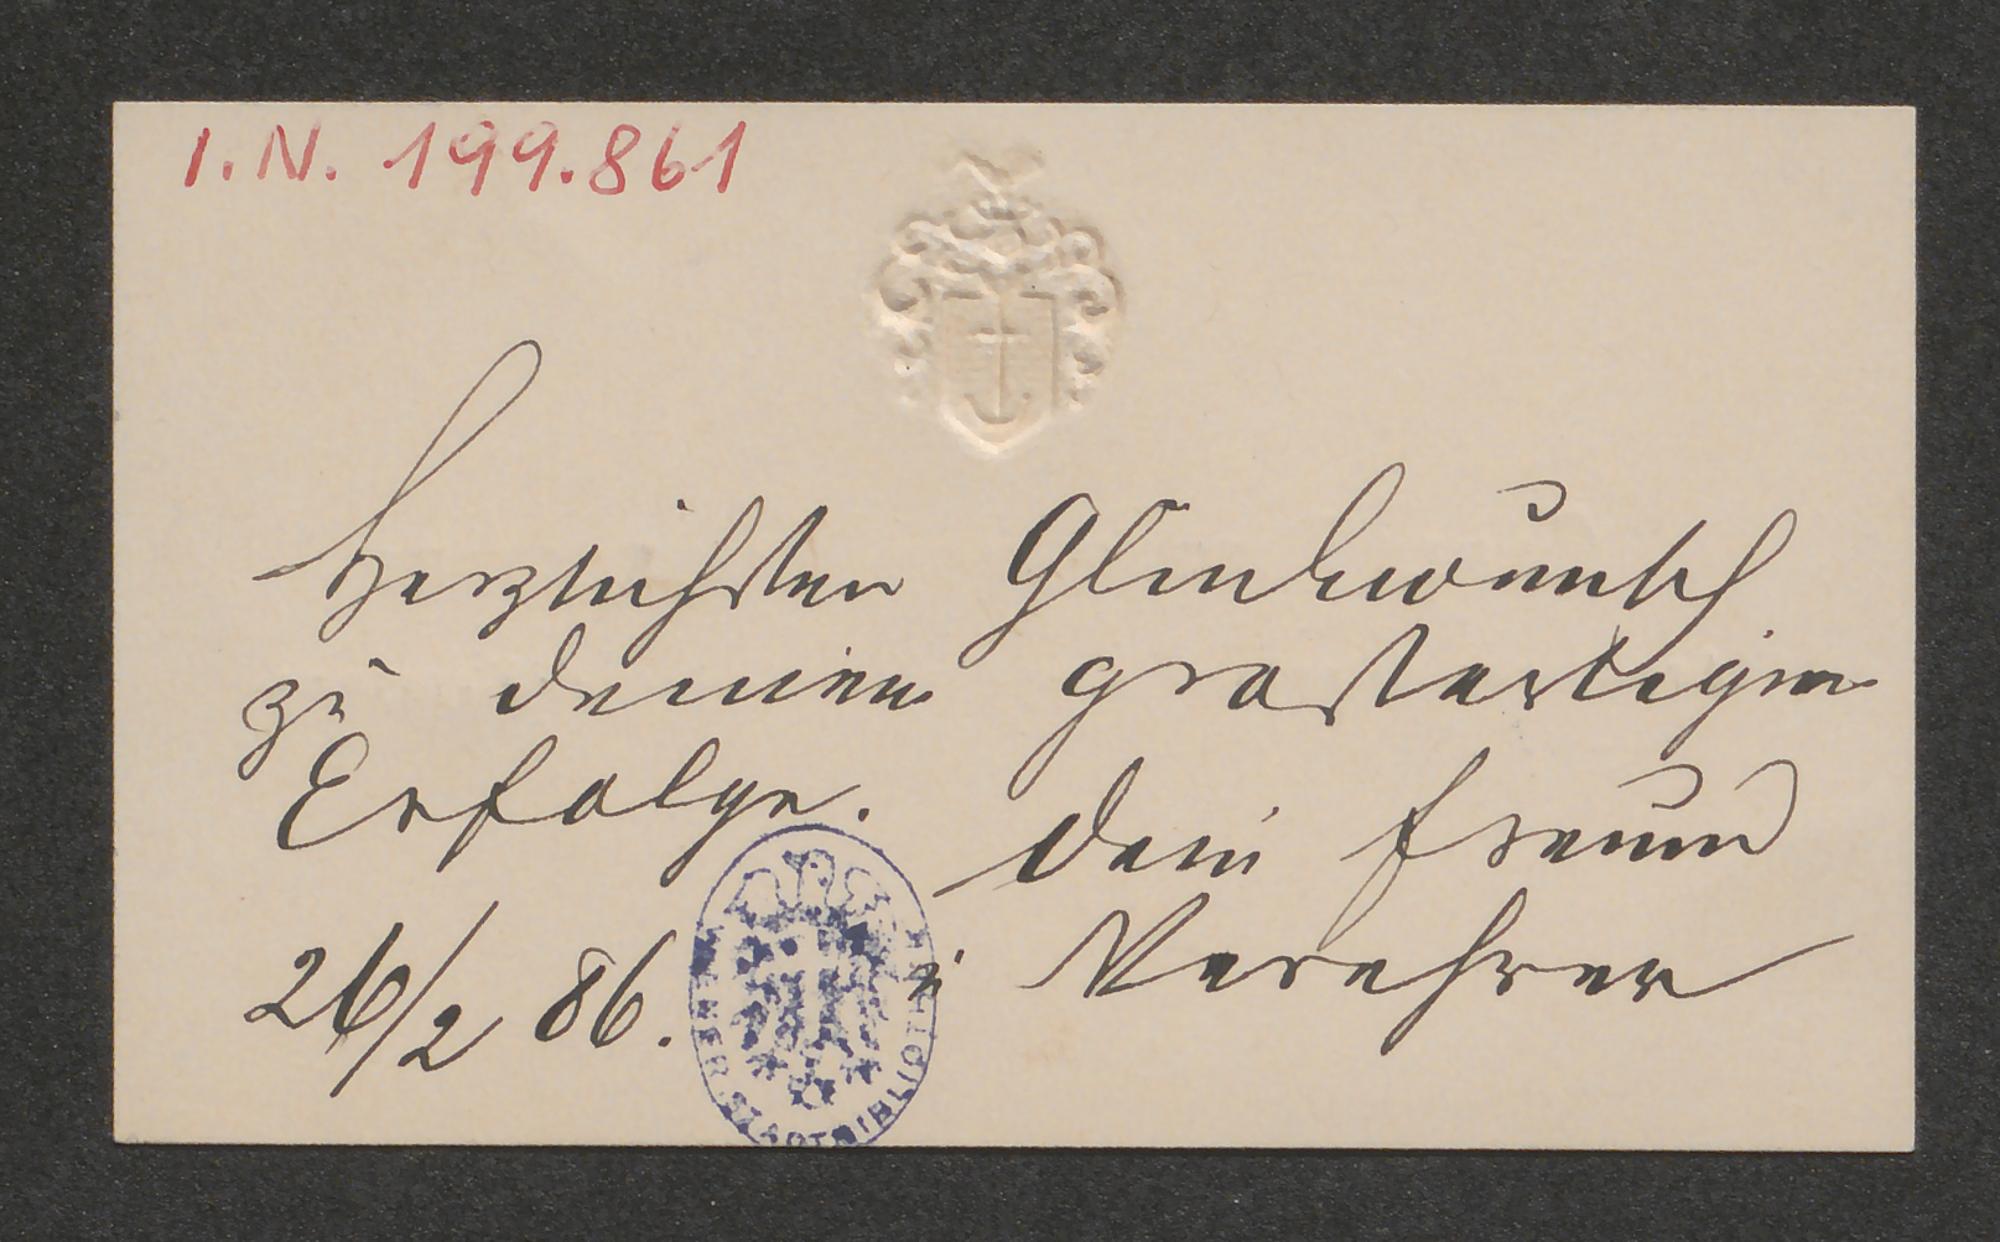 I.N. 199.861
Herzlichsten Glückwunsch
zu deinem großartigen
Erfolge.
Dein Freund
u Verehrer
26/2 86.
WIENER STADTBIBLIOTHEK